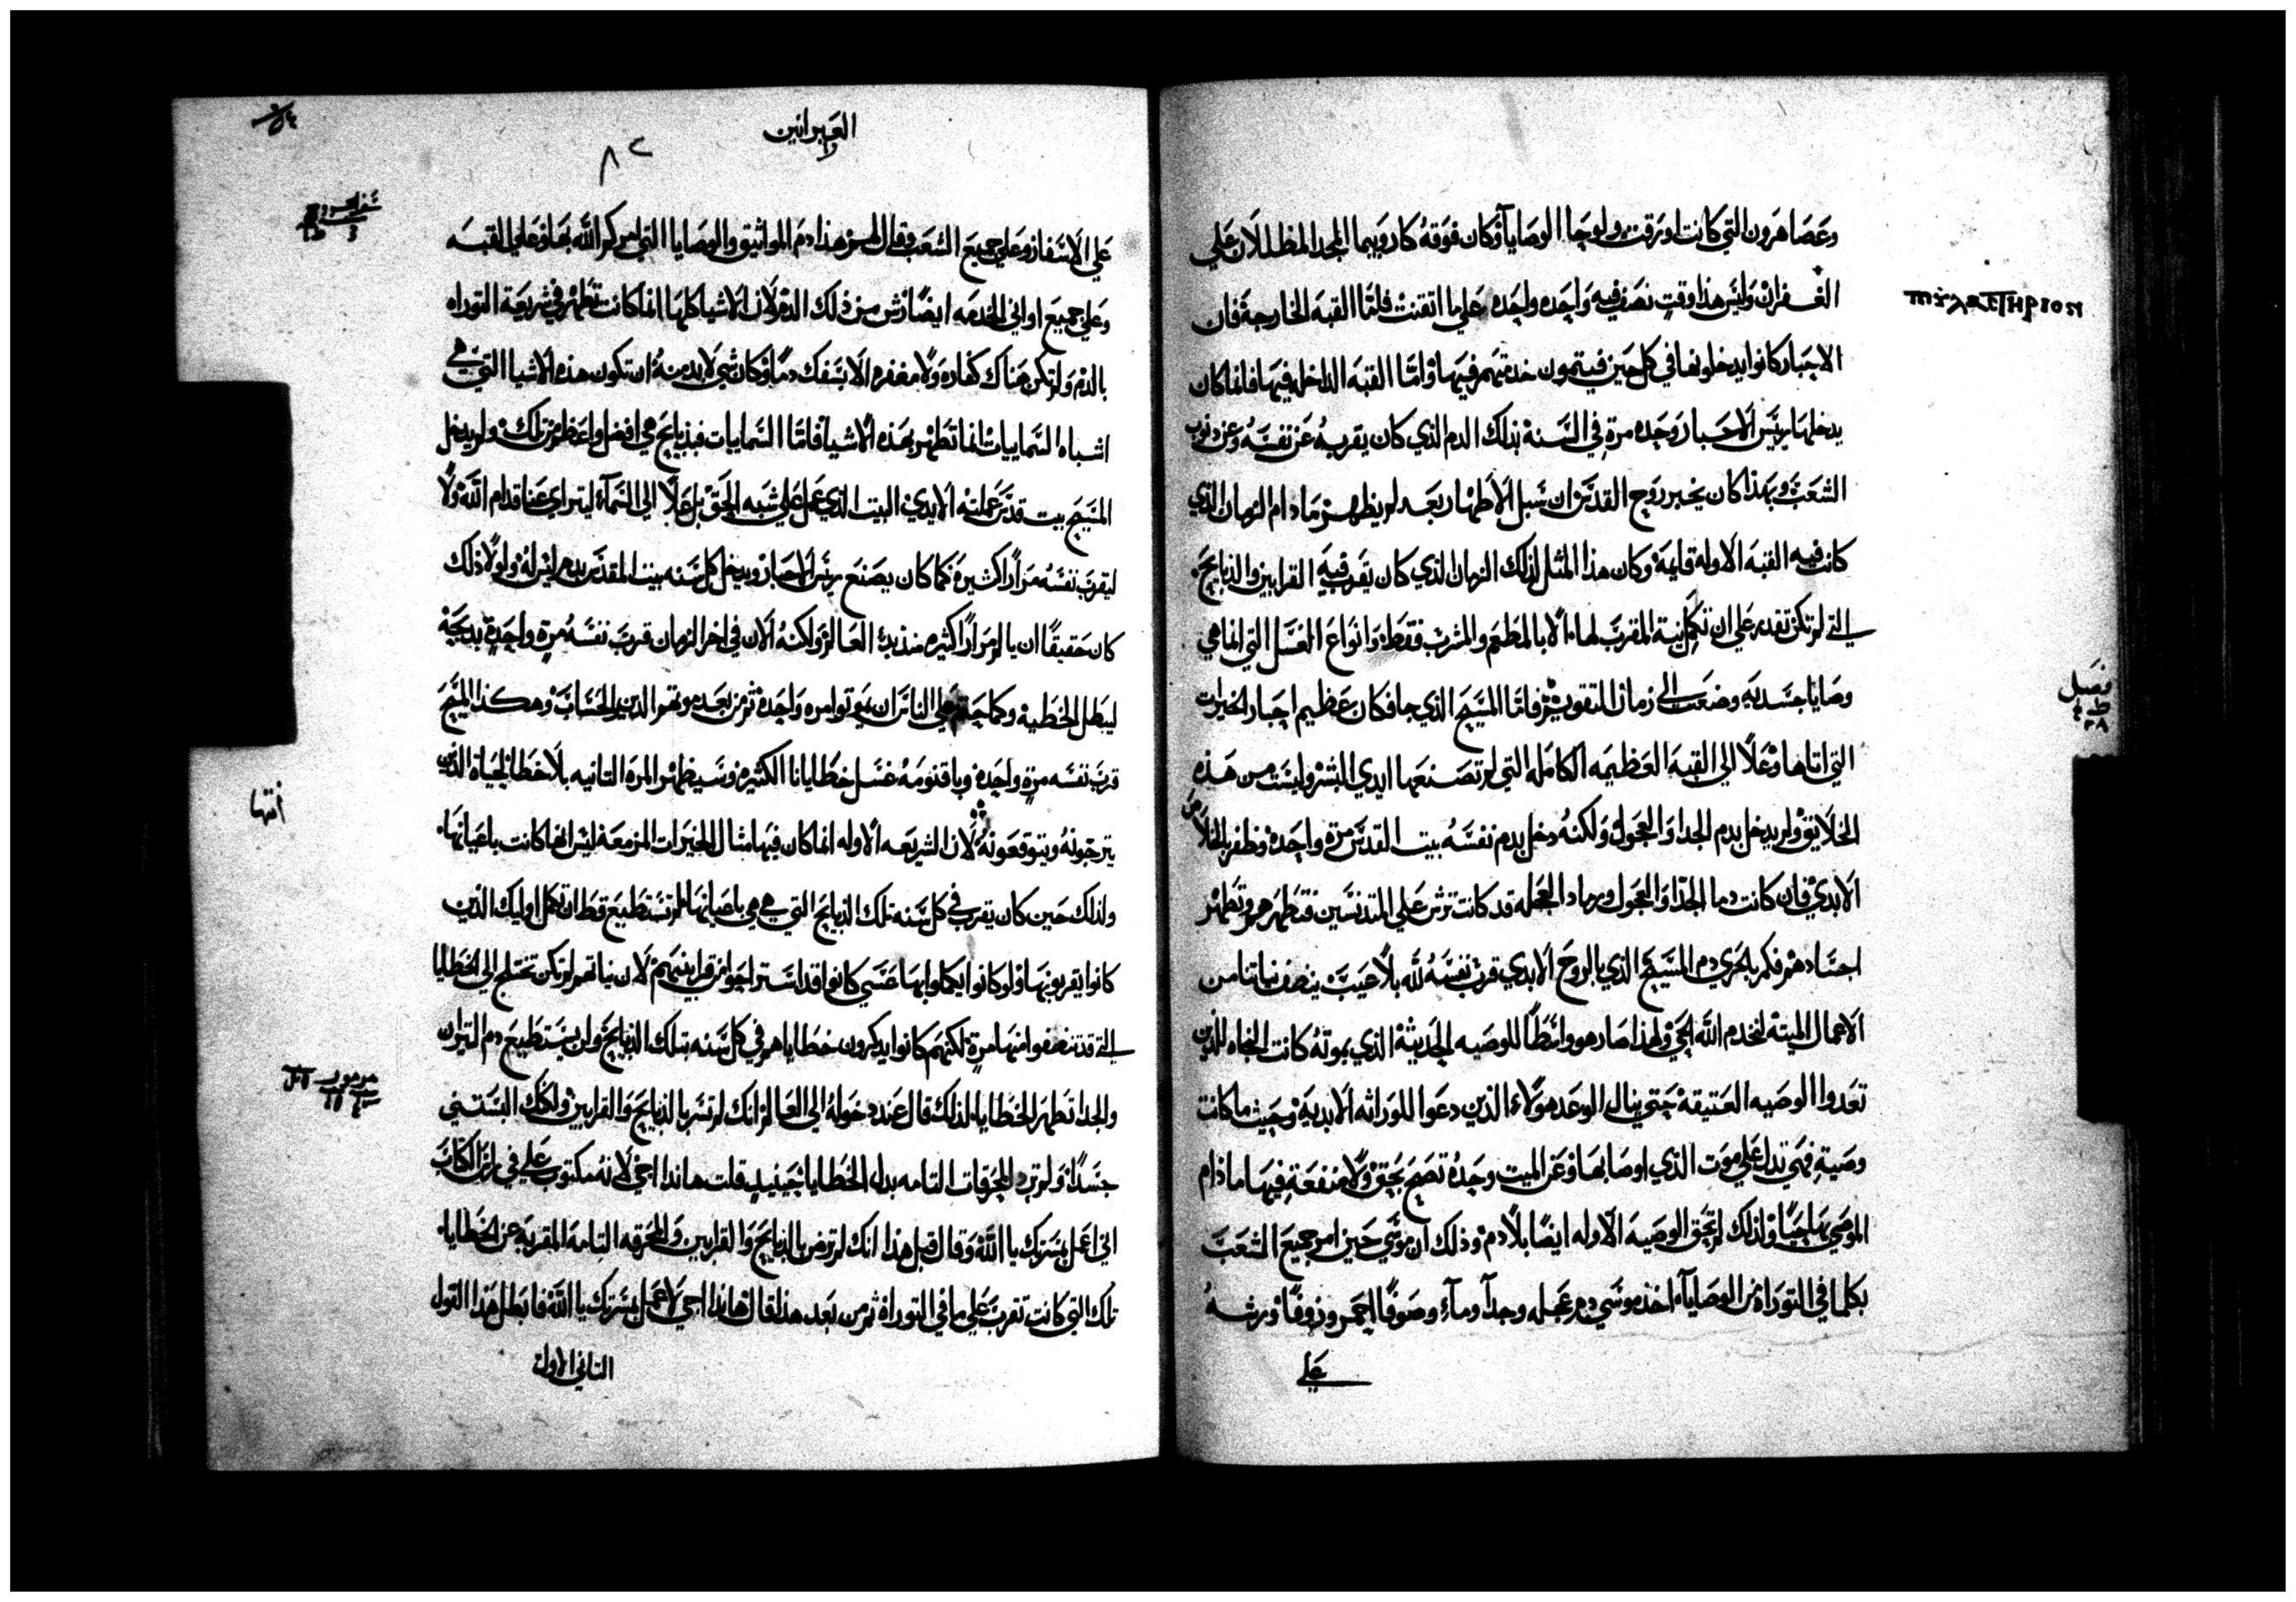 وعصا هرون التي كانت اورقت ولوحا الوصايا وكان فوقه كاروبيما المجد المظللان علي
الغفران وليس هذا وقت نصف فيه واحده واحده علي ما اتقنت فاما القبه الخارجة فان
الاحبار كانوا يدخلونها في كل حين فيتمون خدمتهم فيها واما القبه الداخله فيها فانما كان
يدخلها رييس الاحبار وحده مرة في السنة بذلك الدم الذي كان يقربه عن نفسه وعن ذنوب
الشعب وبهذا كان يخبر روح القدس ان سبل الاطهار بعد لم يظهر ما دام الزمان الذي
كانت فيه القبه الاوله قايمة وكان هذا المثل لذلك الزمان الذي كان يقرب فيه القرابين والذبايح
التي لم تكن تقدر علي ان تكمل نية المقرب لها الا بالمطعم والمشرب فقط وانواع الغسل التي انما هي
وصايا جسديه وضعت الي زمان التقويم فاما المسيح الذي جا فكان عظيم احبار الخيرات
التي اتاها وعلا الي القبة العظيمه الكامله التي لم تصنعها ايدي البشر وليست من هذه
الخلايق ولم يدخل بدم الجدا والعجول ولكنه دخل بدم نفسه بيت القدس مرة واحدة وظفر بالخلاص
الابدي فان كانت دما الجدا والعجول ورماد العجله قد كانت ترش علي المتدنسين فتطهرهم وتطهر
اجسادهم فكم بالحري دم المسيح الذي بالروح الابدي قرب نفسه لله بلا عيب ينضف نياتنا من
الاعمال الميتة لنخدم الله الحي ولهذا صار هو واسطا للوصيه الحديثة الذي بموته كانت النجاه للذين
تعدوا الوصيه العتيقة حتي ينال الوعد هولاء الذين دعوا للوراثه الابدية وحيث ما كانت
وصية فهي تدل علي موت الذي اوصا بها وعن الميت وحده تصح بحق ولا منفعة فيها ما دام
الموصي بها حيا ولذلك لم تحق الوصية الاوله ايضا بلا دم وذلك ان موسي حين امر جميع الشعب
بكلما في التوراة من الوصايا اخذ موسي دم عجله وجدآ ومآء وصوفا احمر وزوفا ورشه
علي
فصل
العبرانين
علي الاسفار وعلي جميع الشعب وقال لهم هذا دم المواثيق والوصايا التي امركم الله بها وعلي القبه
وعلي جميع اواني الخدمه ايضا رش من ذلك الدم لان الاشيا كلها انما كانت تتطهر في شريعة التوراه
بالدم ولم تكن هناك كفاره ولا مغفره الا بسفك دم وكان شي لا بد منه ان تكون هذه الاشيا التي هي
اشباه السماييات انما تطهر بهذه الاشيا فاما السمايات فبذبايح هي افضل واعظم من تلك ولم يدخل
المسيح بيت قدس عملته الايدي البيت الذي عمل علي شبه الحق بل علا الي السمآء ليتراي عنا قدام الله ولا
ليقرب نفسه مرارا كثيرة كما كان يصنع رييس الاحبار ويدخل كل سنه بيت المقدس بدم ليس له ولولا ذلك
كان حقيقا ان يالم مرارا كثيره منذ بدء العالم ولكنه الان في اخر الزمان قرب نفسه مرة واحدة بذبيحة
ليبطل الخطية وكما حتم علي الناس ان يموتوا مره واحدة ثم من بعد موتهم الدين والحساب وهكذا المسيح
قرب نفسه مرة واحدة وباقنومه غسل خطايانا الكثيره وسيظهر المره الثانيه بلا خطا لحياة الذين
يترجونه ويتوقعونه لان الشريعه الاوله انما كان فيها مثال الخيرات المزمعة ليس انها كانت باعيانها
ولذلك حين كان يقرب في كل سنة تلك الذبايح التي هي هي باعيانها لم تستطيع قط ان تكمل اوليك الذين
كانوا يقربونها ولو كانوا يكملوا بها عسي كانوا قد استراحوا من قرابينهم لان نياتهم لم تكن تختلج الي الخطايا
التي قد تنضفوا منها مرة لكنهم كانوا يذكرون خطاياهم في كل سنه بتلك الذبايح ولن يستطيع دم التيران
والجدا تطهر الخطايا لذلك قال عند دخوله الي العالم انك لم تسر بالذبايح والقرابين ولكنك البستني
جسدا ولم ترد المحرقات التامه بدل الخطايا حينيذ قلت هانذا اجي لانه مكتوب علي في راس الكتاب
اني اعمل بمسرتك يا الله وقال قبل هذا انك لم ترض بالذبايح والقرابين والمحرقه التامة المقربة عن الخطايا
تلك التي كانت تقرب علي ما في التوراة ثم من بعد هذا قال هانذا اجي لاعمل بمسرتك يا الله فابطل هذا القول
الثاني الاول
انتها
مزمور